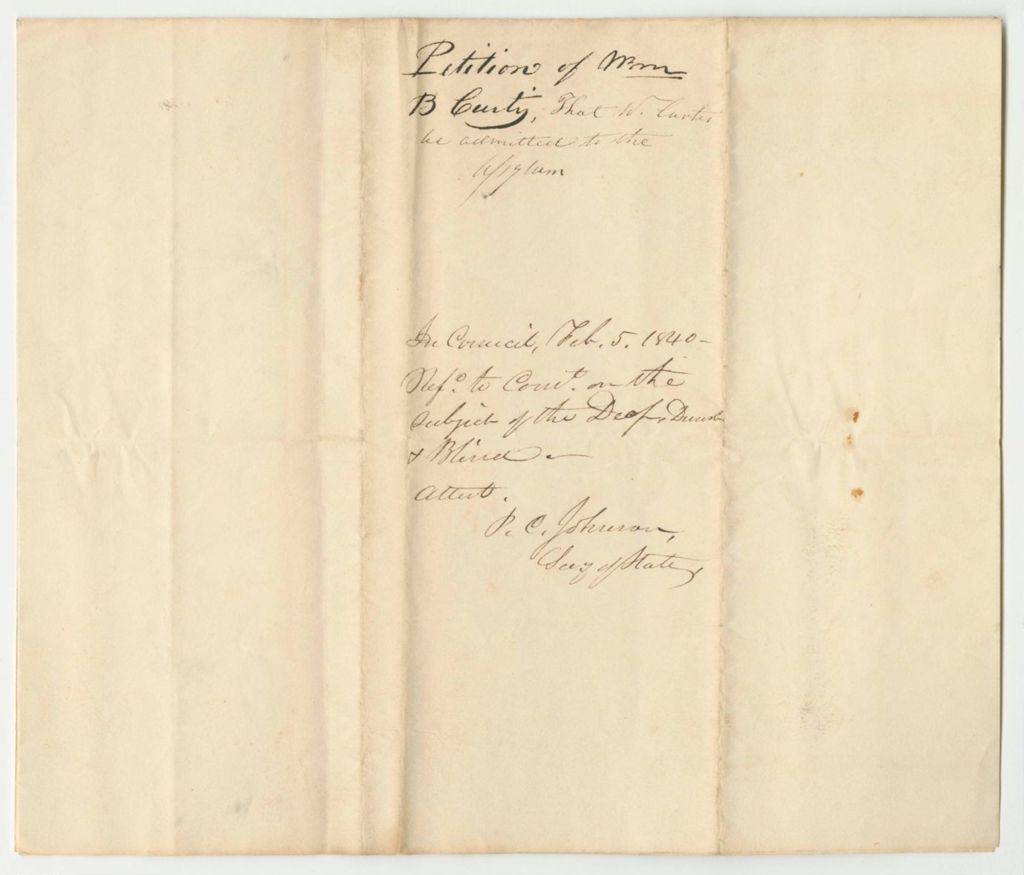 Petition of Wm
B Curtis, That W. Curtis
be admitted to the
Asylum
In Council, Feb. 5. 1840-
Refd. to Comte. on the
subject of the Deaf, Dumb
& Blind -
Attest.
P. C. Johnson,
Secy of State